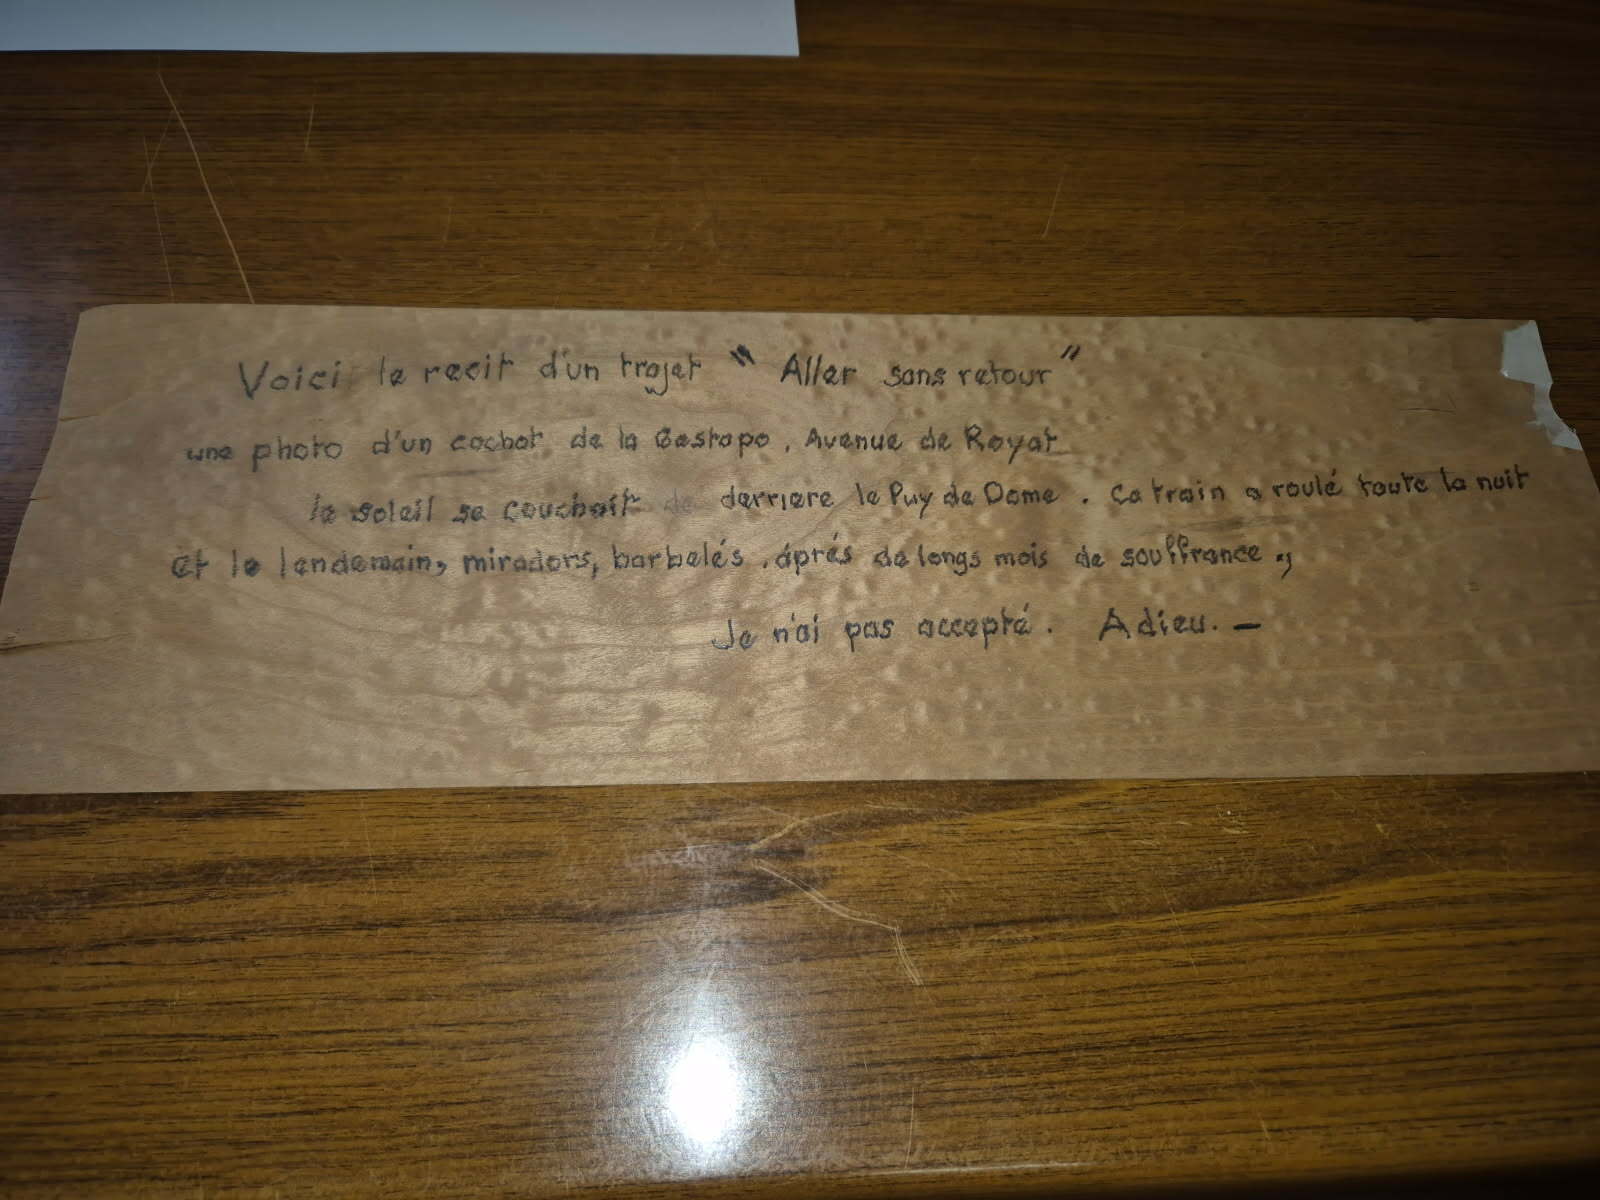 Voici le recit d'un trajet " Aller sans retour "
une photo d'un cachot de la Gestapo, Avenue de Royat
le soleil se couchait de derriere le Puy de Dome. Ca train a roulé toute la nuit
Et le lendemain, miradors, barbelés, áprés de longs mois de souffrance.,
Je n'ai pas accepté. Adieu. —